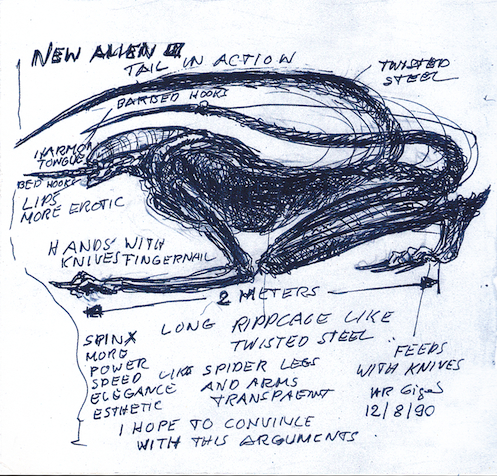 NEW ALIEN III
TAIL IN ACTION
TWISTED
STEEL
BARBED HOOKS
HARMON
TONGUE
BED HOOKS
LIPS
MORE EROTIC
HANDS WITH
KNIVES FINGERNAIL
2 METERS
LONG RIPPCAGE LIKE
TWISTED STEEL
SPINX
MORE
POWER
SPEED
ELEGANCE
ESTHETIC
LIKE SPIDER LEGS
AND ARMS
TRANSPAENT
FEEDS
WITH KNIVES
HR Giger
12/8/90
I HOPE TO CONVINCE
WITH THIS ARGUMENTS